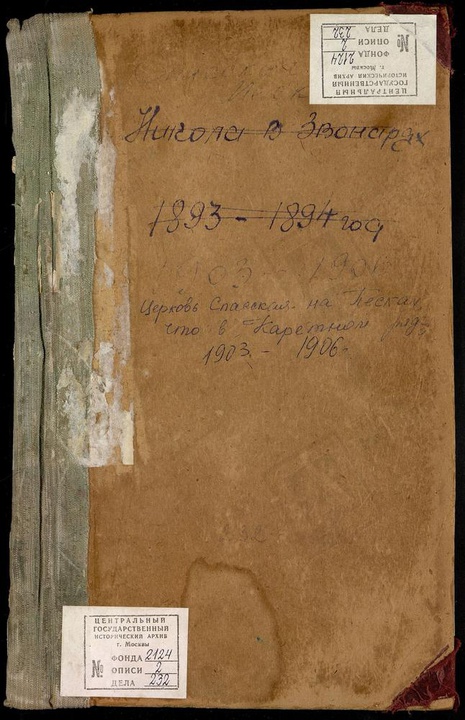 ЦЕНТРАЛЬНЫЙ
ГОСУДАРСТВЕННЫЙ
ИСТОРИЧЕСКИЙ АРХИВ
г. Москвы
№
ФОНДА 2124
ОПИСИ 2
ДЕЛА 232
Никола в Звонарях
1893 - 1894 год
Церковь Спасская на Песках
что в Каретном ряду
1903 - 1906.
ЦЕНТРАЛЬНЫЙ
ГОСУДАРСТВЕННЫЙ
ИСТОРИЧЕСКИЙ АРХИВ
г. Москвы
№
ФОНДА 2124
ОПИСИ 2
ДЕЛА 232